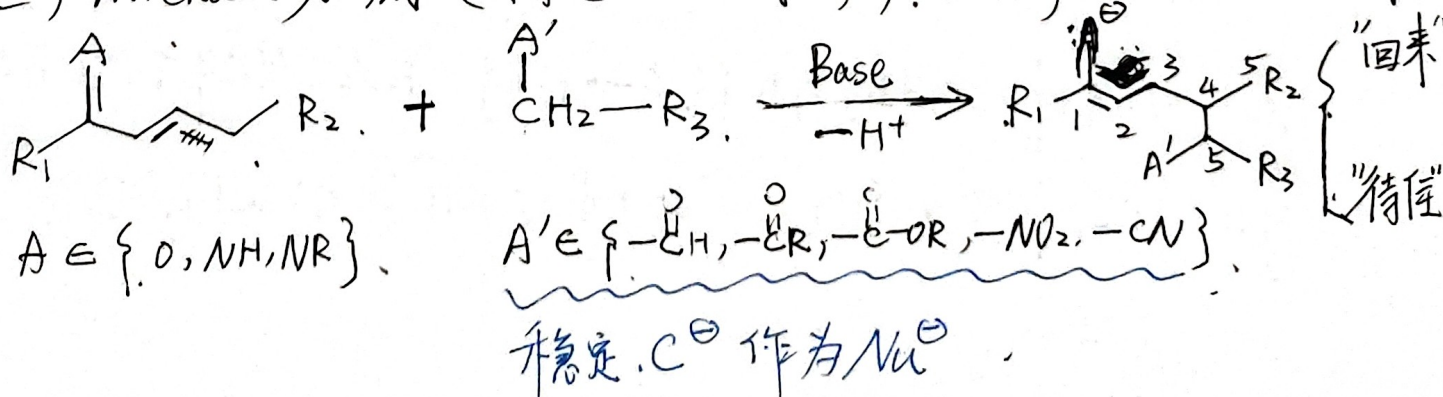 A A' ⊖
R₁ R₂. + CH₂—R₃. Base −H⁺ R₁ 1 2 3 4 5 R₂ A' 5 R₃ { "回来"
"待住"
A ∈ {O, NH, NR}. A' ∈ {−CH, −CR, −C−OR, −NO₂, −CN}.
稳定.C⊖ 作为Nu⊖.